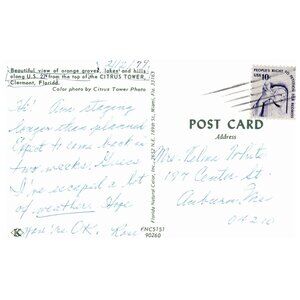 3/12/79
Beautiful view of orange groves, lakes and hills
along U.S. 27 from the top of the CITRUS TOWER,
Clermont, Florida.
Color photo by Citrus Tower Photo
Hi! Am staying
longer than planned
Expect to come back in
two weeks. Guess
I've escaped a lot
of weather. Hope
you're O.K. Rose
Florida Natural Color, Inc.
FNC5151
90260
K
PEOPLE'S RIGHT TO
USA 10c
POST CARD
Address
Mrs. Velma White
187 Center St.
Auburn, Me
04210